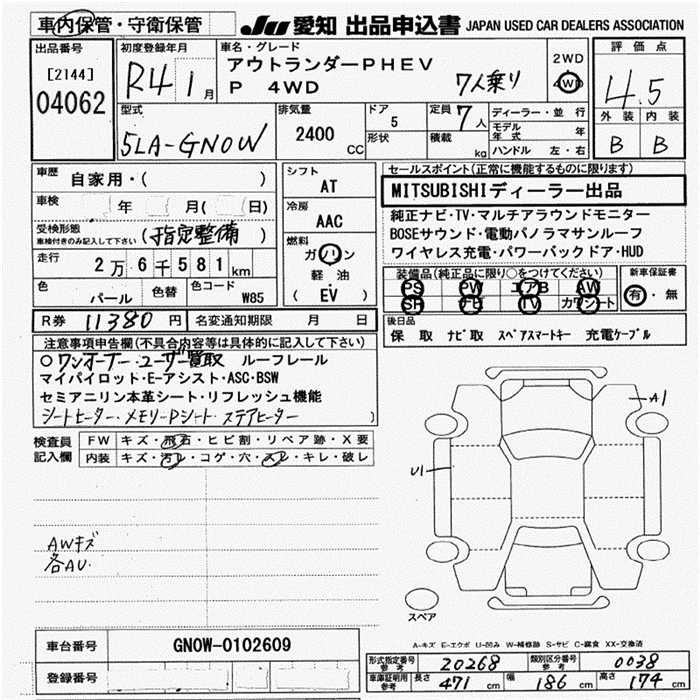 車内保管・守衛保管
JU 愛知 出品申込書 JAPAN USED CAR DEALERS ASSOCIATION
出品番号
[2144]
04062
初度登録年月
R4 1 月
車名・グレード
アウトランダーPHEV
P 4WD 7人乗り
2WD
4WD
評価点
4.5
外装 内装
B B
型式
5LA-GN0W
排気量
2400 CC
ドア
5
形状
定員 7 人
積載 kg
ディーラー・並行
モデル年式 年
ハンドル 左・右
車歴
自家用・( )
車検
年 月( 日)
受検形態
車検付きのみ記入して下さい
(指定整備)
走行
2万6千581km
色
パール
色替
色コード
W85
シフト
AT
冷房
AAC
燃料
ガソリン
軽油
( EV )
セールスポイント(正常に機能するものに限ります)
MITSUBISHIディーラー出品
純正ナビ・TV・マルチアラウンドモニター
BOSEサウンド・電動パノラマサンルーフ
ワイヤレス充電・パワーバックドア・HUD
装備品(純正品に限り○をつけてください)
PS PW エアB AW
SR ナビ TV カワシート
新車保証書
有・無
R券 11380 円
名変通知期限 月 日
後日品
保 取 ナビ取 スペアスマートキー 充電ケーブル
注意事項申告欄(不具合内容等は具体的に記入して下さい)
○ワンオーナー・ユーザー買取 ルーフレール
マイパイロット・E-アシスト・ASC・BSW
セミアニリン本革シート・リフレッシュ機能
シートヒーター・メモリーPシート・ステアヒーター )
検査員
記入欄
FW キズ・飛石・ヒビ割・リペア跡・X要
内装 キズ・汚レ・コゲ・穴・スレ・キレ・破レ
AWキズ
各AU.
A1
U1
スペア
A-キズ E-エクボ U-凹み W-補修跡 S-サビ C-腐食 XX-交換済
車台番号
GN0W-0102609
登録番号
形式指定番号
参考
20268
類別区分番号
参考
0038
車庫証明用
参考
長さ 471 cm
幅 186 cm
高さ 174 cm